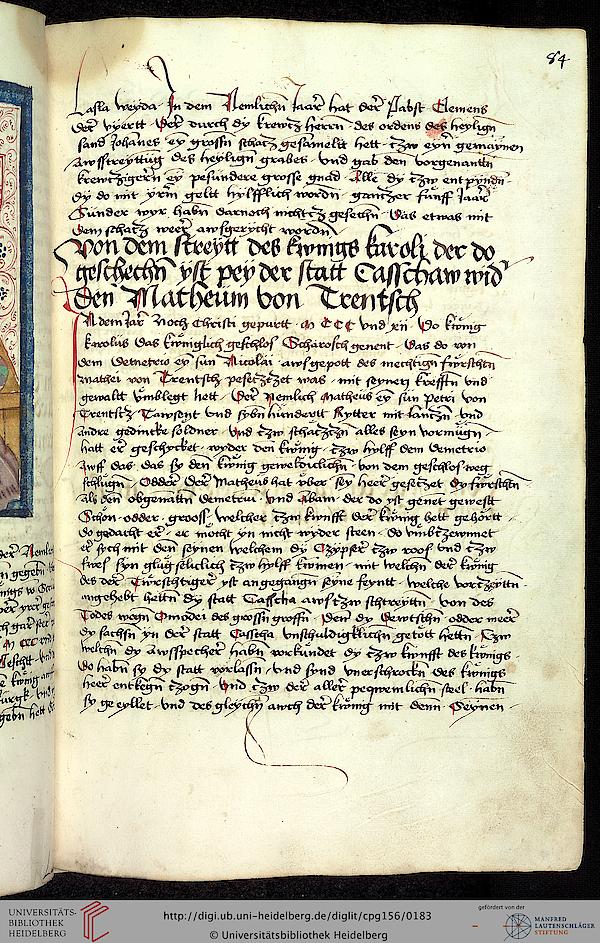 84
lasla weyda · In dem Nemlichn Jaar hat der Pabst Clemens
der vyertt · Der durch dy krewtz herrn · des ordens des heylign
sand Johanes · ey grossn schatz gesamelt hett · tzw eyn gemaynen
des heylign grabes · vnd gab den vorgenantn
krewtzigern ey pesundere grosse gnad · Alle dy tzw
dy do mit yrm geltt hylfflich wordn · gantzer funff Jaar
Sunder wyr habn darnoch nichtz gesechn · das etwas mit
dem schatz weer awsgerycht wordn
Von dem streytt des kwnigs karolj der do
geschechn yst pey der statt Casschaw wid
den Matheum von Trentsch
In dem Jar Noch Christi gepurtt · M CCC vnd xij · Do kwnig
karolus das kwniglich geschlos Scharosch genent · das do von
dem Demetrio ey sun Nicolai · aws gepott des mechtign fwrschtn
mathei von Trentsch pesetzet was · mit seynen krefftn vnd
gewaltt vmblegt hett · Der Nemlich Matheus ey sun petri von
Trentsch · Tawsent vnd sybn hundertt Rytter mit lantzn · vnd
andre gedinckte soldner · vnd tzw schatztzn alles seyn vormugn
hatt er geschycket · wyder den kwnig · tzw hylff dem demetrio
Awff das · das sy den kwnig geweldiclichn · von dem geschlos weg
schlugn · Odder der Matheus hat vber sey heer gesetzet dy fwrschtn
als den obgenantn demetriu · vnd Abam · der do yst genet gewestt
Schon · odder · grooss · welcher tzw kwnfft der kwnig hett gehortt
do gedacht er · er mocht yn nicht wyder steen · do
er sych mit den seynen welchem dy Czypser tzw roos vnd tzw
fwes syn tzw hylff kwmen · mit welchn der kwnig
des der yst angegangn seyne feyntt · welche vortzeyttn
angehebt hettn dy statt Casscha aws tzw schtreyttn · von des
Todes wegn Omodei des grossn grossn · den dy Dewtschn · odder meer
dy sachsn yn der statt Casscha vnschuldigklichn getott hettn · Tzw
welchn dy awsspecher habn vorkundet dy tzw kwnfft des kwnigs
do habn sy dy statt vorlassn · vnd synd vnerschrockn des kwnigs
heer entkegn tzogn · vnd tzw der aller peqwemlichn steel · habn
sy ge eyllet · vnd des gleychn awch der kwnig mit denn Seynen
UNIVERSITÄTS-
BIBLIOTHEK
HEIDELBERG
http://digi.ub.uni-heidelberg.de/diglit/cpg156/0183
© Universitätsbibliothek Heidelberg
gefördert von der
MANFRED
LAUTENSCHLÄGER
STIFTUNG